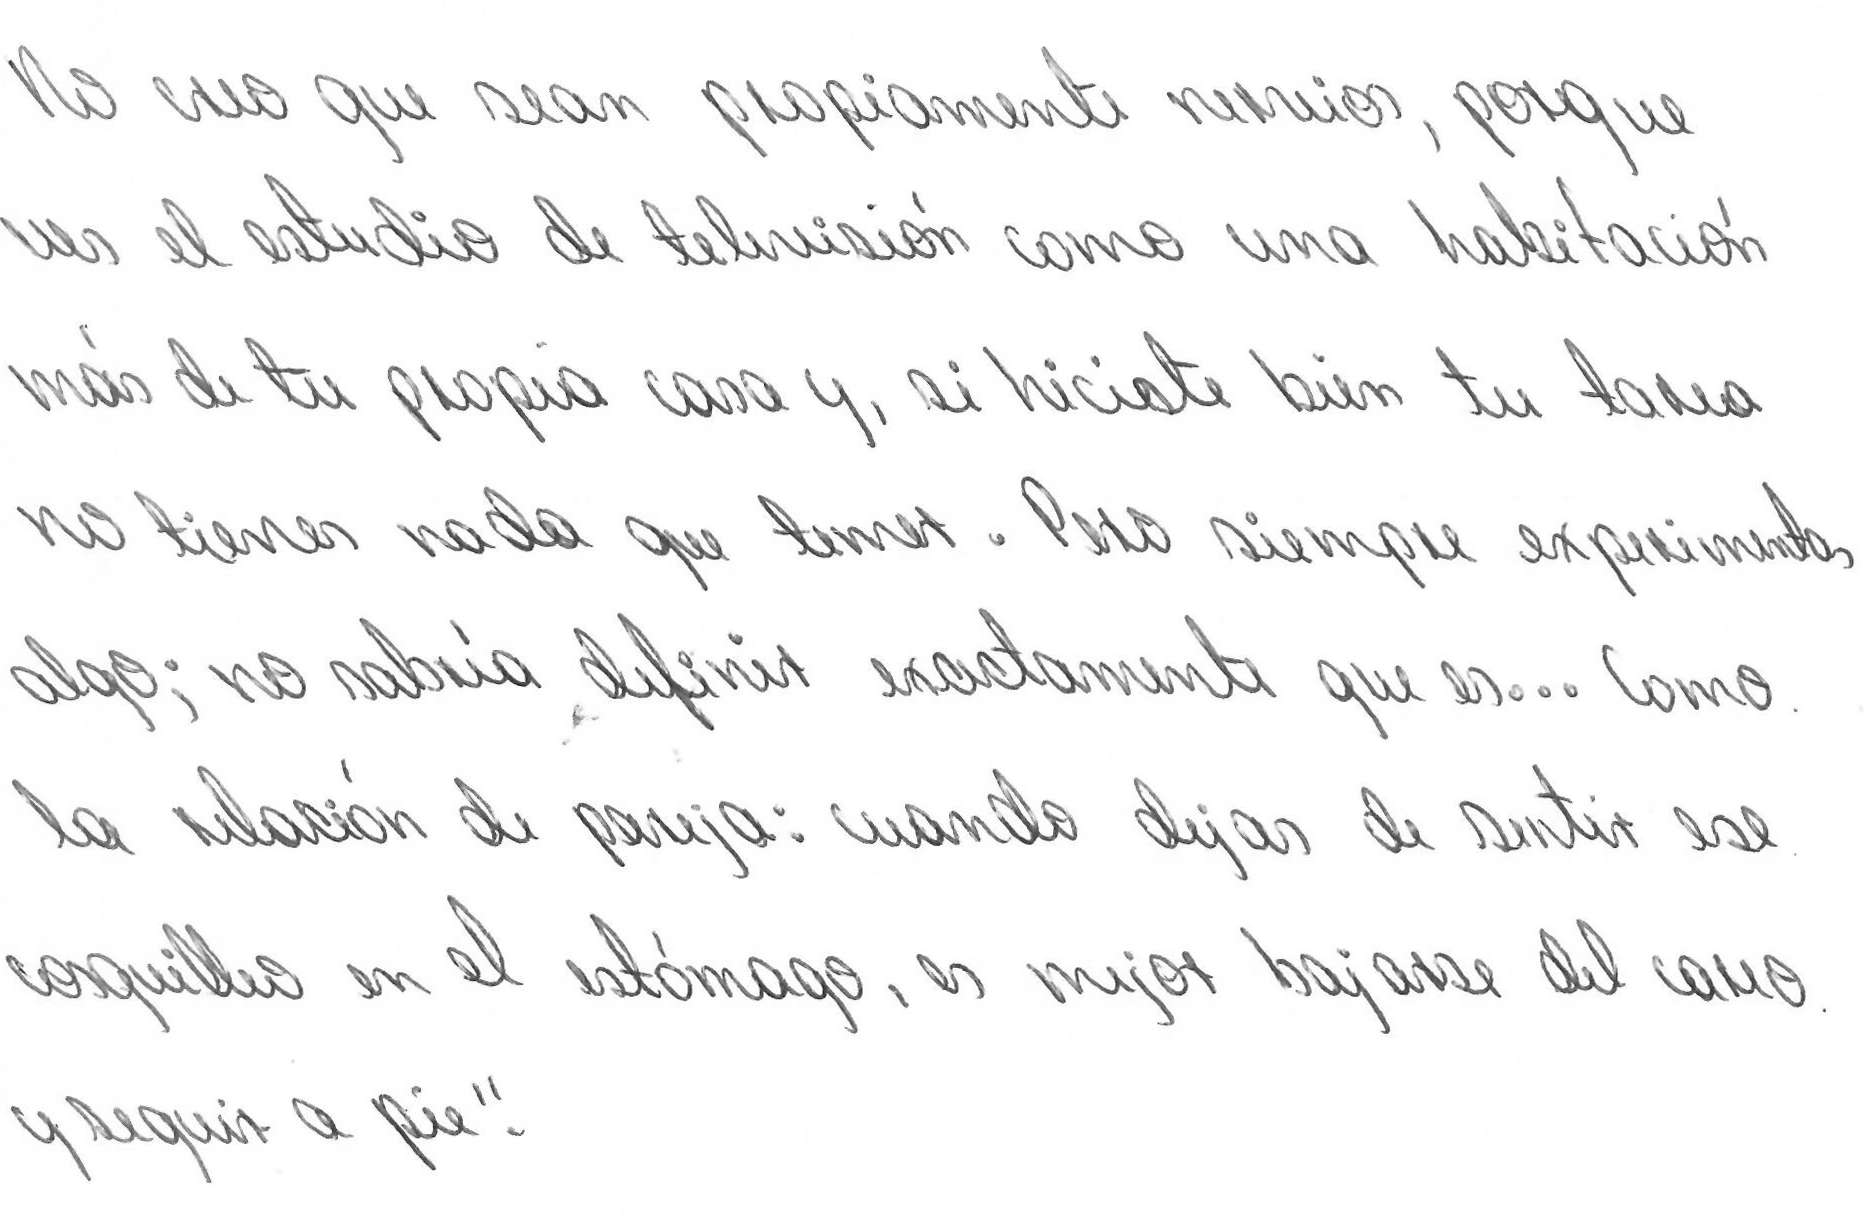 No creo que sean propiamente nervios, porque
ves el estudio de televisión como una habitación
más de tu propia casa y, si hiciste bien tu tarea
no tienes nada que temer. Pero siempre experimentas
algo; no sabría definir exactamente que es... Como
la relación de pareja: cuando dejas de sentir ese
cosquilleo en el estómago, es mejor bajarse del carro
y seguir a pie".